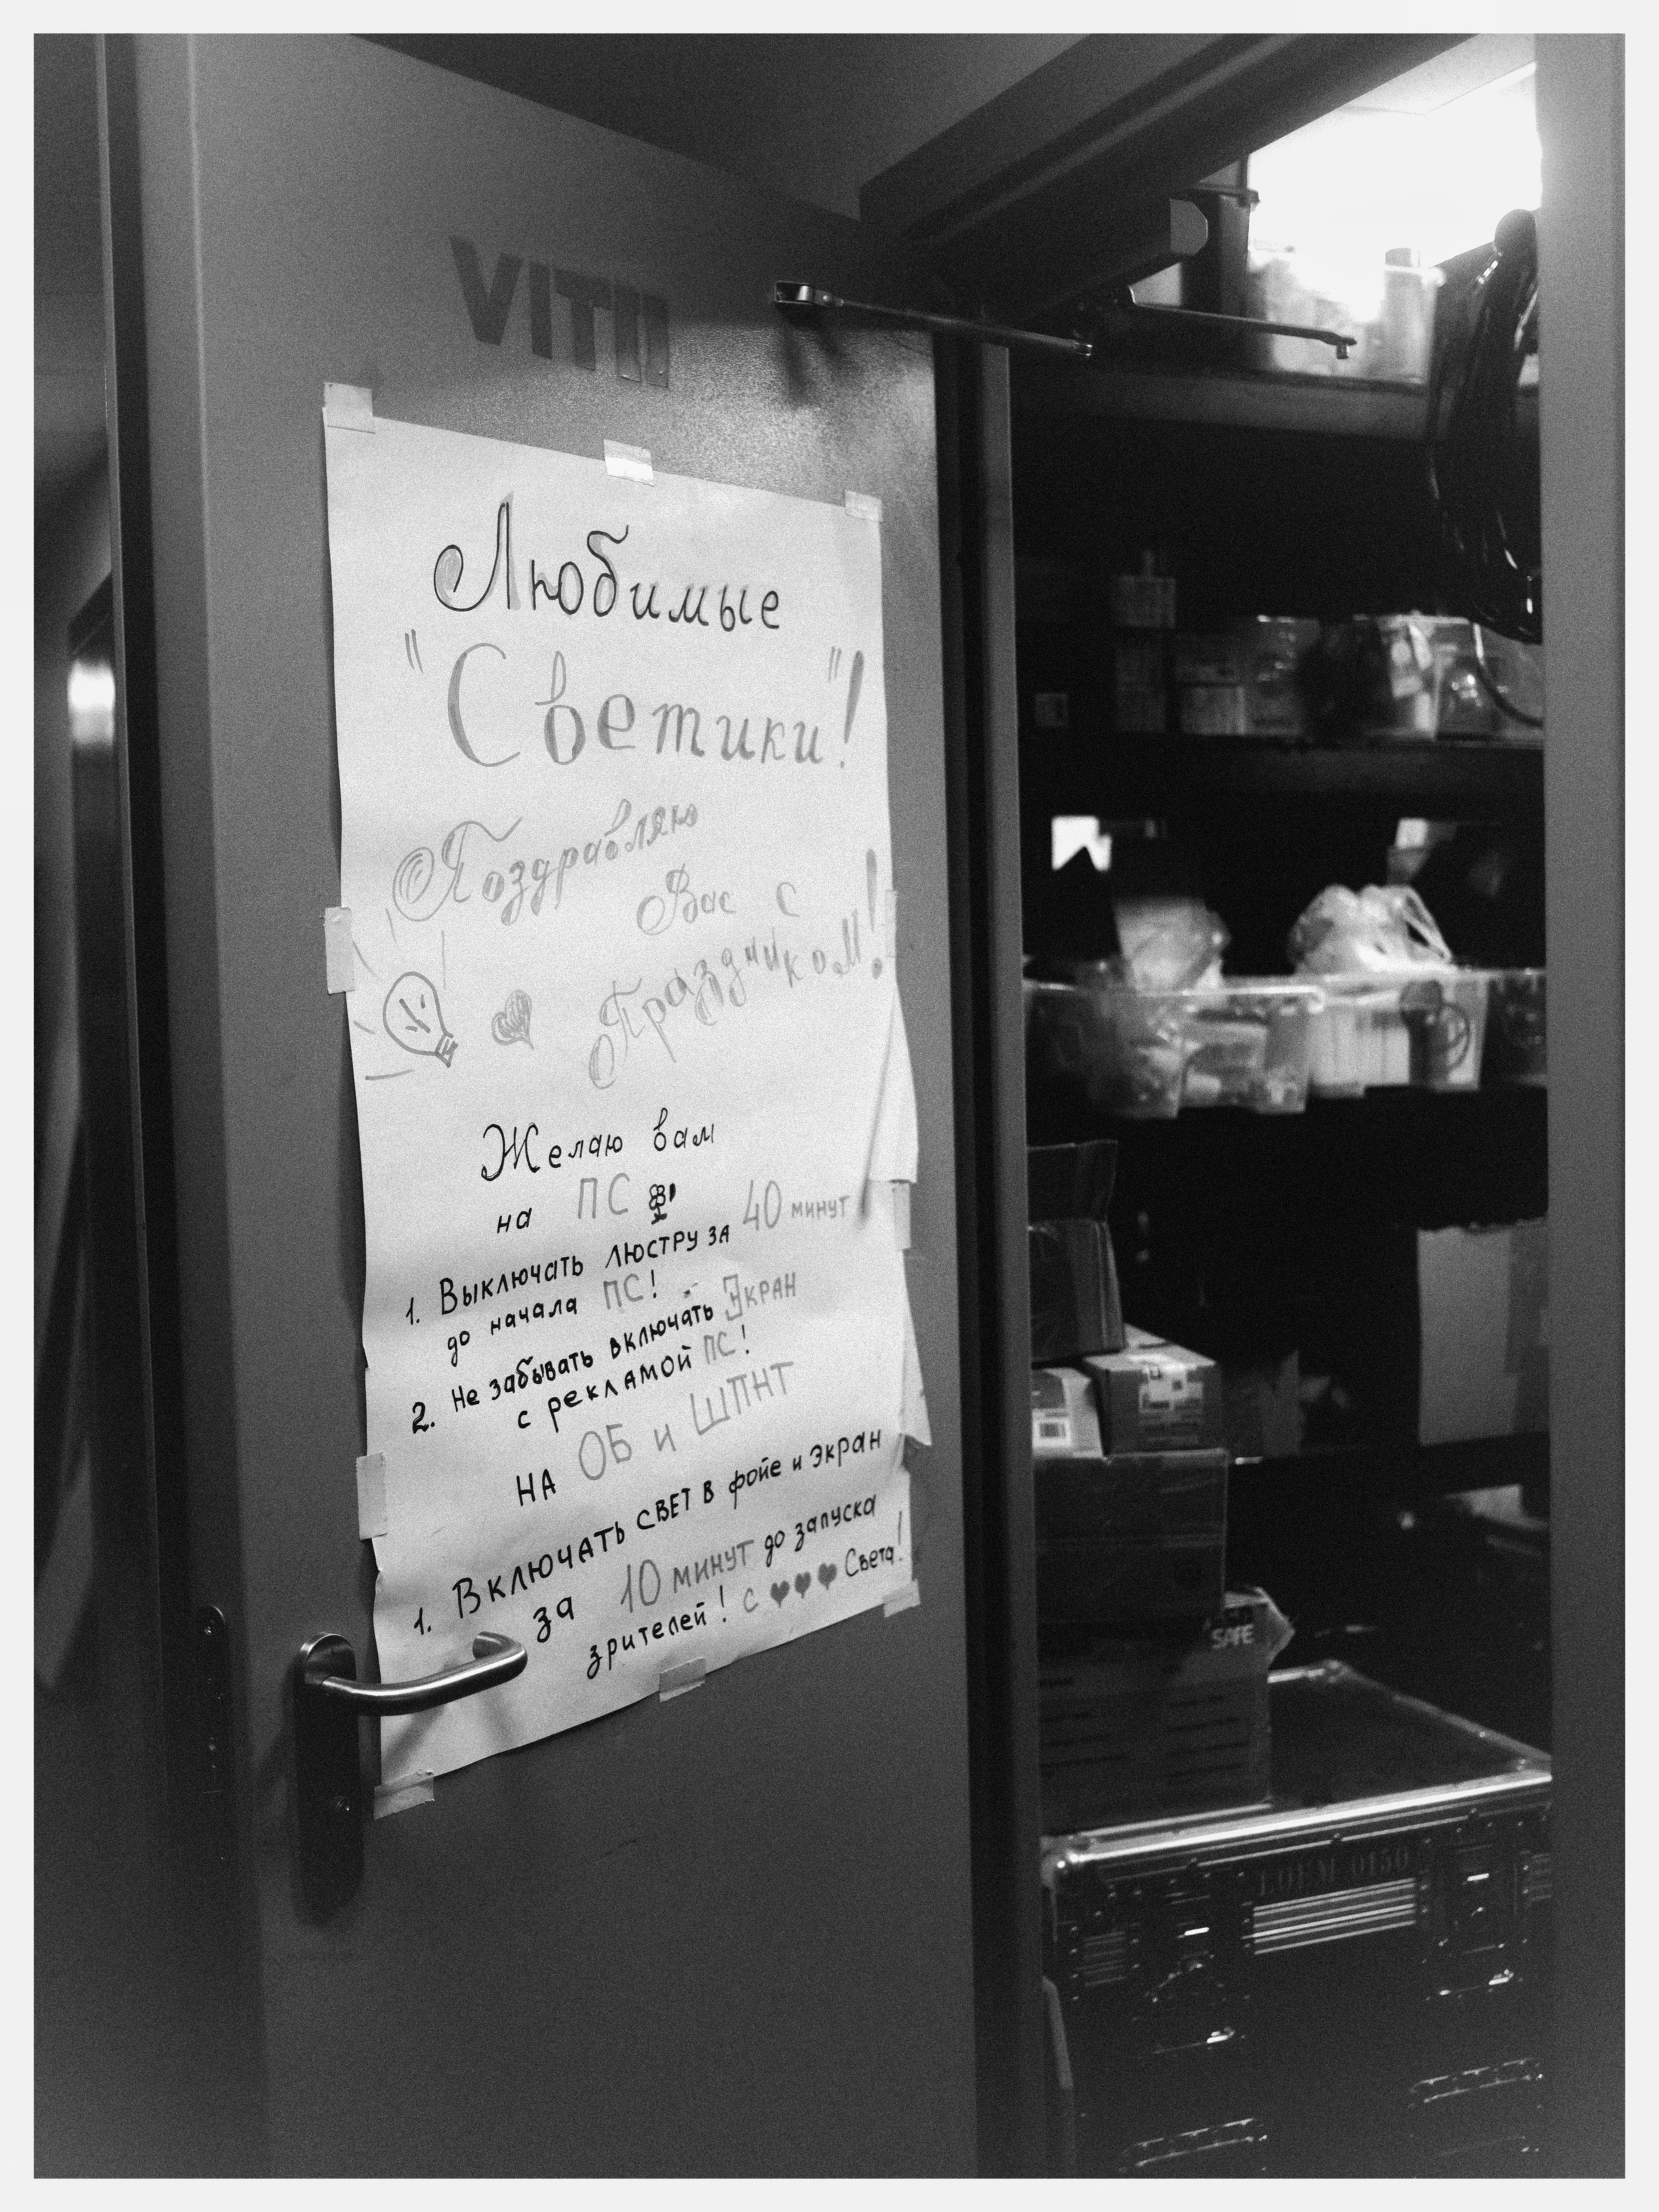 VITII
Любимые
"Светики"!
Поздравляю
Вас с
Праздником!
Желаю вам
на ПС
1. Выключать люстру за 40 минут
до начала ПС!
2. Не забывать включать Экран
с рекламой ПС!
НА ОБ и ШПНТ
1. Включать свет в фойе и экран
за 10 минут до запуска
зрителей! С Света!
SAFE
0150